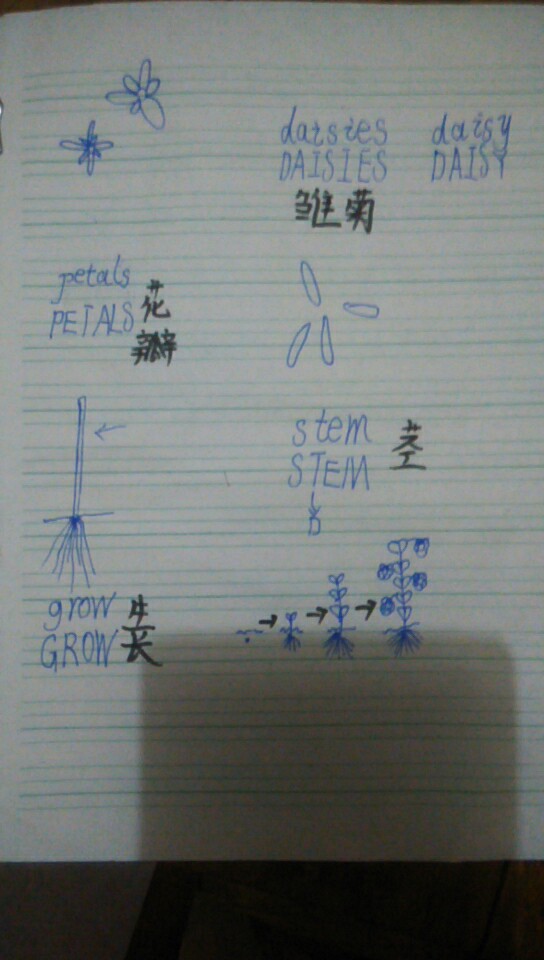 daisies daisy
DAISIES DAISY
雏菊
petals
PETALS
花
瓣
stem
STEM
茎
grow
GROW
生
长